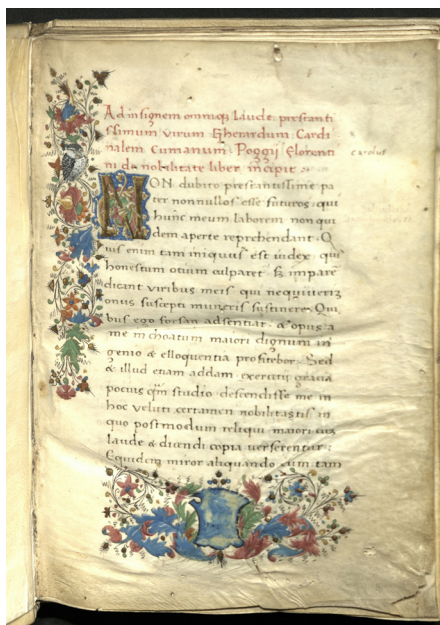 Ad insignem omniq; laude prestanti
ssimum virum Gherardum Cardi
nalem Cumanum Poggij Florenti
ni de nobilitate liber incipit
carolus
NON dubito prestantissime pa
ter nonnullos esse futuros qui
hunc meum laborem non qui
dem aperte reprehendant. Q
uis enim tam iniquus est iudex qui
honestum otium culparet. sz imparē
dicant viribus meis qui nequiuerīz
onus suscepti muneris sustinere. Qui
bus ego forsan adsentiar. & opus a
me inchoatum maiori dignum in
genio & elloquentia profitebor. Sed
& illud etiam addam exercitij gratia
pocius qm̄ studio descendisse me in
hoc veluti certamen nobilitatis in
quo postmodum reliqui maiori cuz
laude & dicendi copia verserentur.
Equidem miror aliquando cum tam